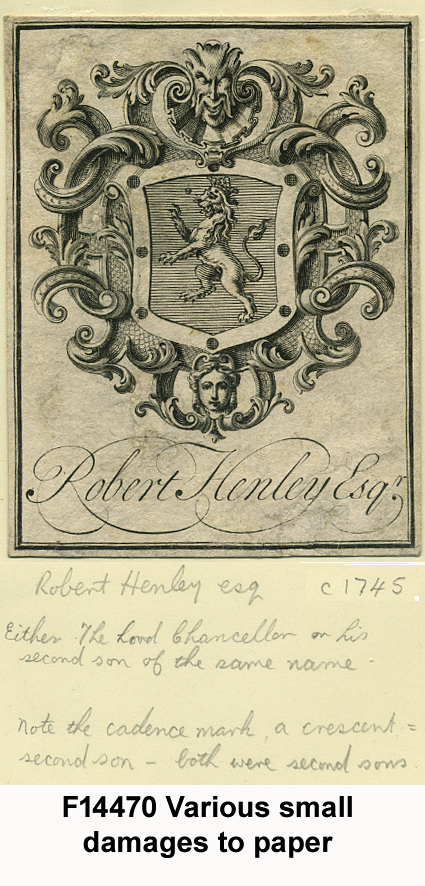 Robert Henley Esqr.
Robert Henley esq c 1745
Either The Lord Chancellor or his
second son of the same name.
Note the cadence mark, a crescent =
second son - both were second sons.
F14470 Various small
damages to paper